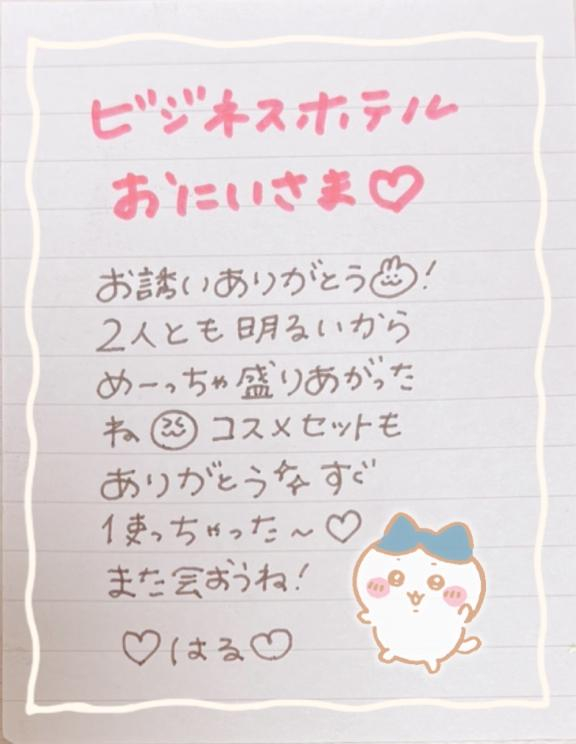 ビジネスホテル
おにいさま♡
お誘いありがとう!
2人とも明るいから
めーっちゃ盛りあがった
ね コスメセットも
ありがとう✨すぐ
使っちゃった~♡
また会おうね!
♡はる♡